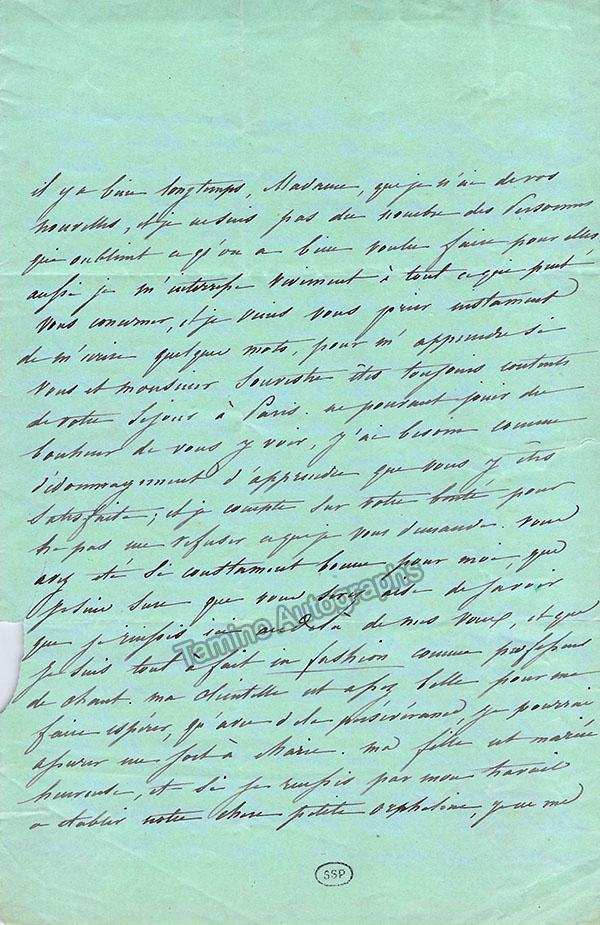 il y a bien longtemps, Madame, que je n'ai de vos
nouvelles, et je ne suis pas du nombre des Personnes
qui oublient ce qu'on a bien voulu faire pour elles
aussi je m'interresse vivement à tout ce qui peut
vous concerner, et je viens vous prier instament
de m'écrire quelque mots, pour m'apprendre si
vous et monsieur Souvestre êtes toujours contents
de votre séjour à Paris. ne pouvant jouir du
bonheur de vous y voir, j'ai besoin comme
dédommagement d'apprendre que vous y êtes
satisfaite; et je compte sur votre bonté pour
ne pas me refuser ce que je vous demande. vous
avez été si constament bonne pour moi, que
je suis sure que vous serez aise de savoir
que je reussis ici au delà de mes vœux, et que
je suis tout à fait in fashion comme professeur
de chant. ma clientelle est assez belle pour me
faire espérer, qu'avec de la persévérance, je pourrai
assurer un sort à Marie. ma fille est mariée
heureuse, et si je reussis par mon travail
a établir notre chere petite orpheline, je ne me
Tamino Autographs
SSP